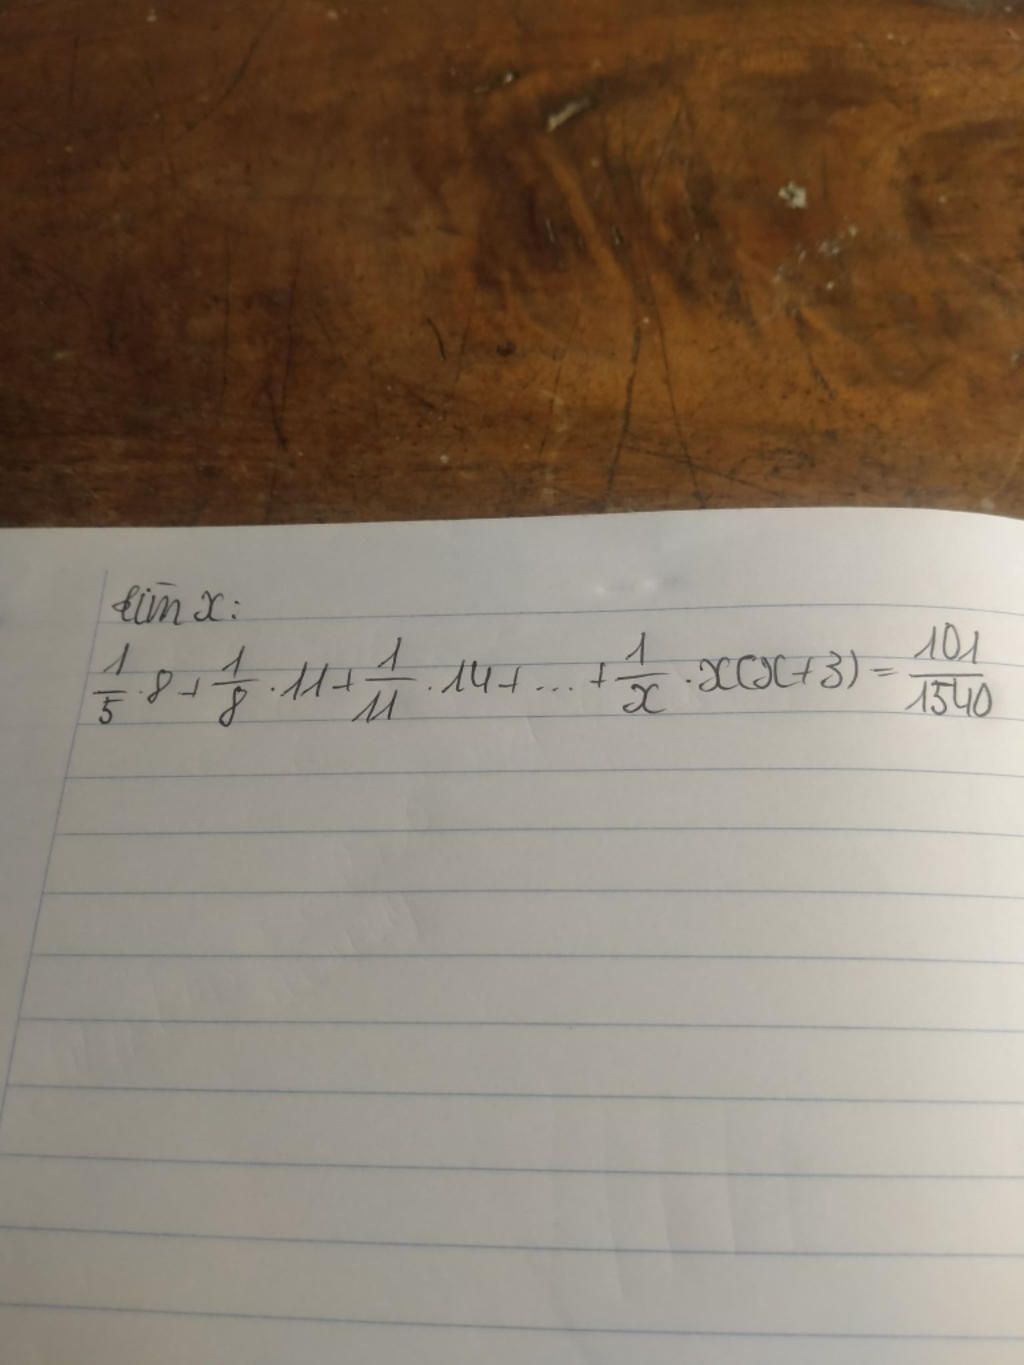 tìm x:
1/5 . 8 + 1/8 . 11 + 1/11 . 14 + ... + 1/x . x(x+3) = 101/1540